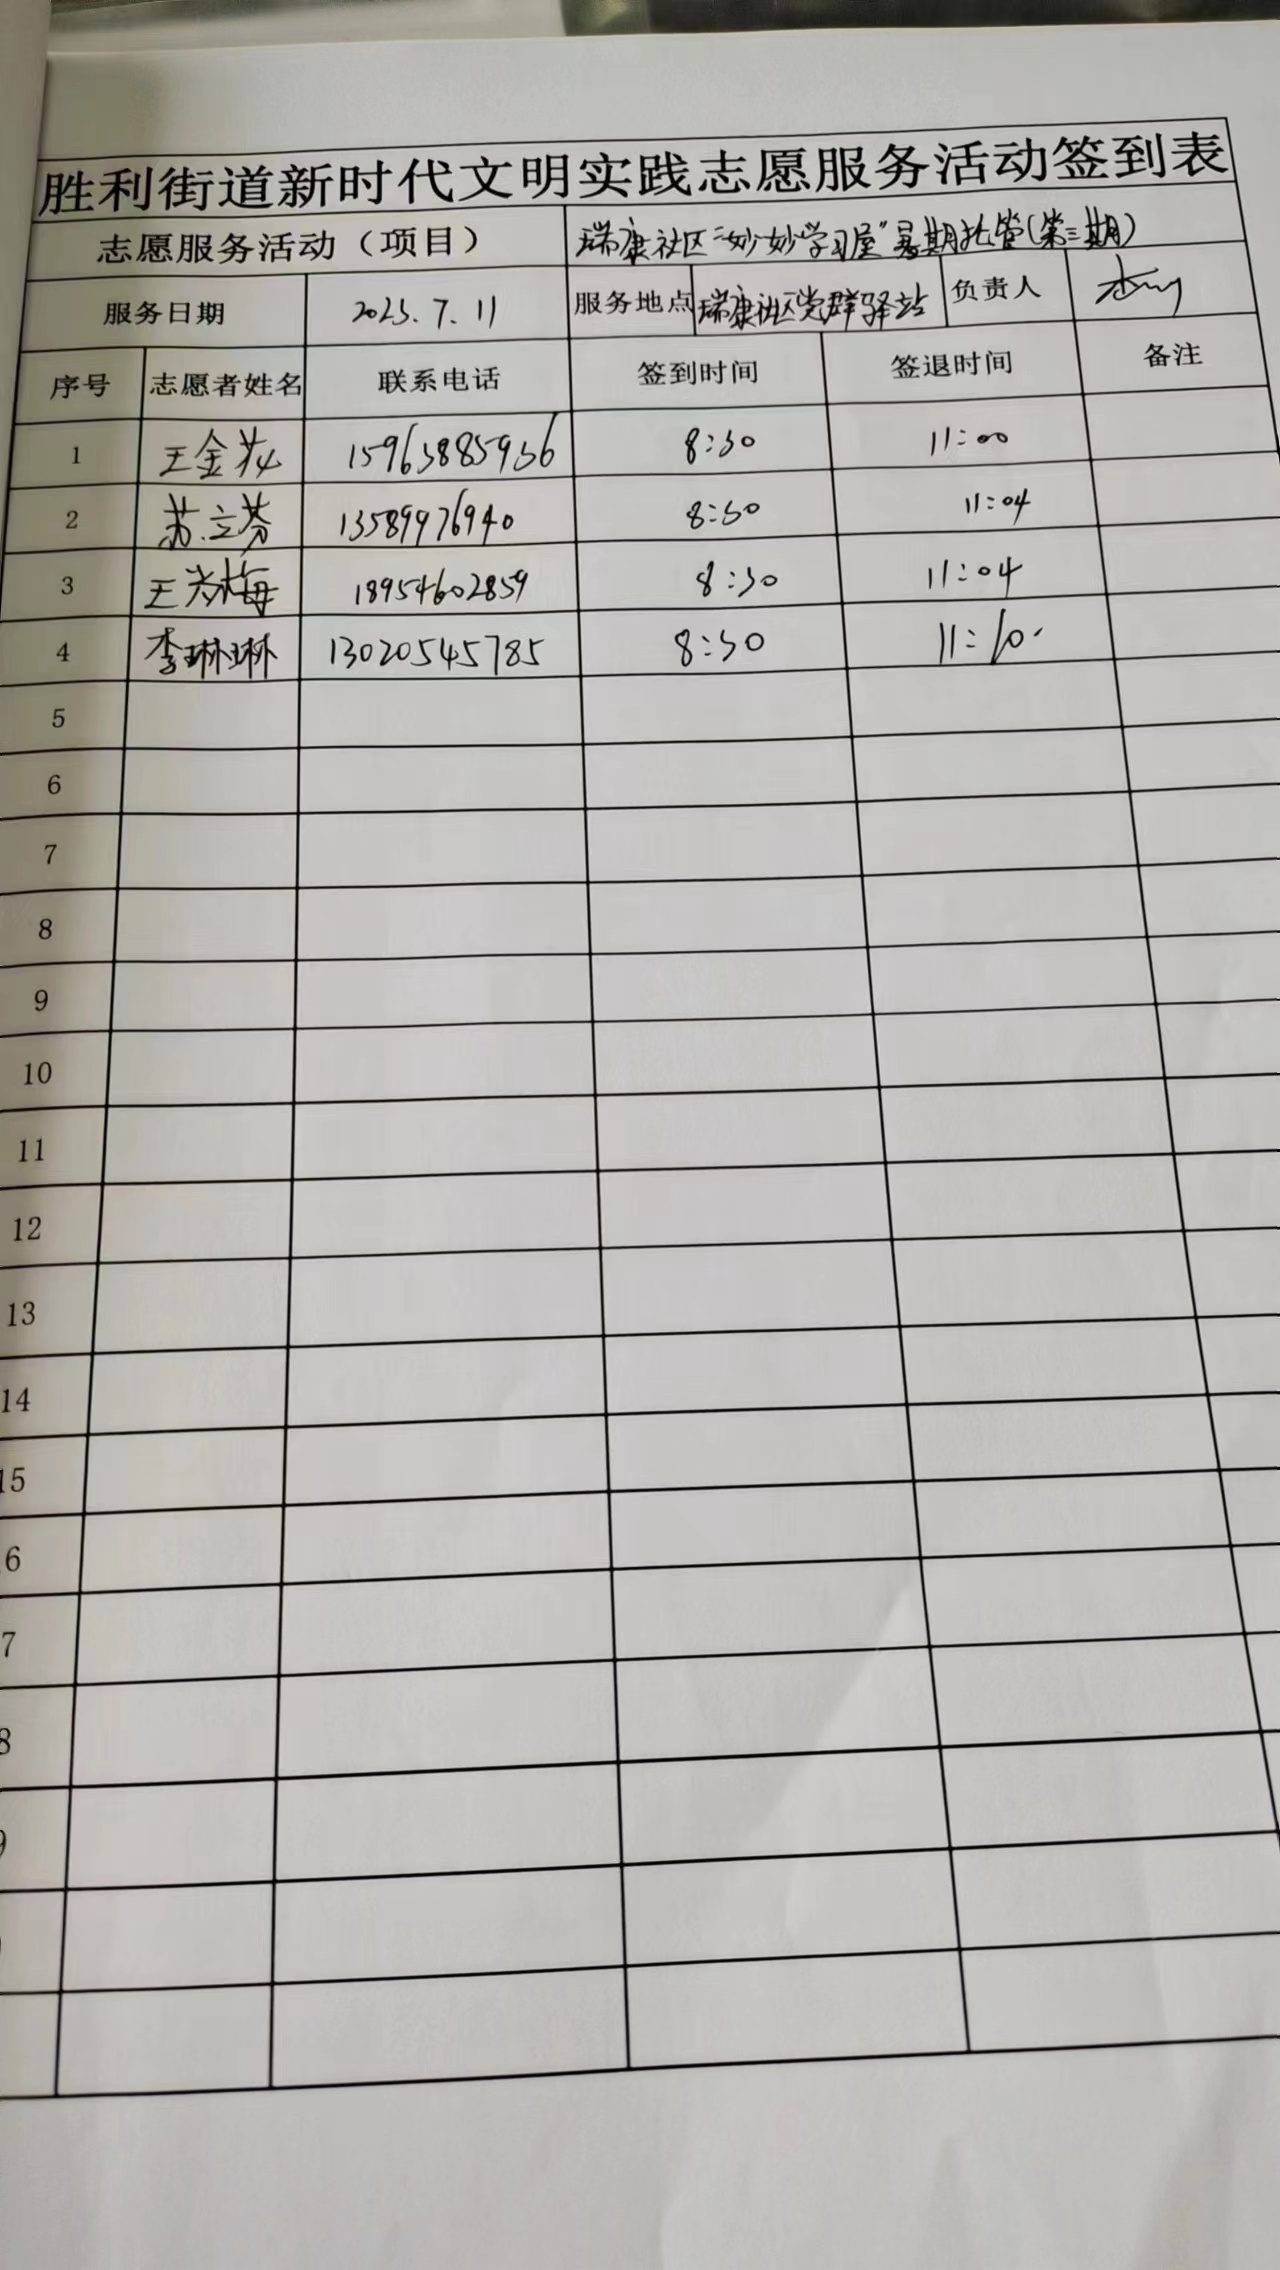 胜利街道新时代文明实践志愿服务活动签到表
志愿服务活动（项目） 瑞康社区“妙妙学习屋”暑期托管(第三期)
服务日期 2023.7.11 服务地点 瑞康社区党群驿站 负责人
序号 志愿者姓名 联系电话 签到时间 签退时间 备注
1 王金花 15963885936 8:30 11:00
2 苏立芬 13589976940 8:30 11:04
3 王 梅 18954602859 8:30 11:04
4 李琳琳 13020545785 8:30 11:10
5
6
7
8
9
10
11
12
13
14
15
6
7
8
9